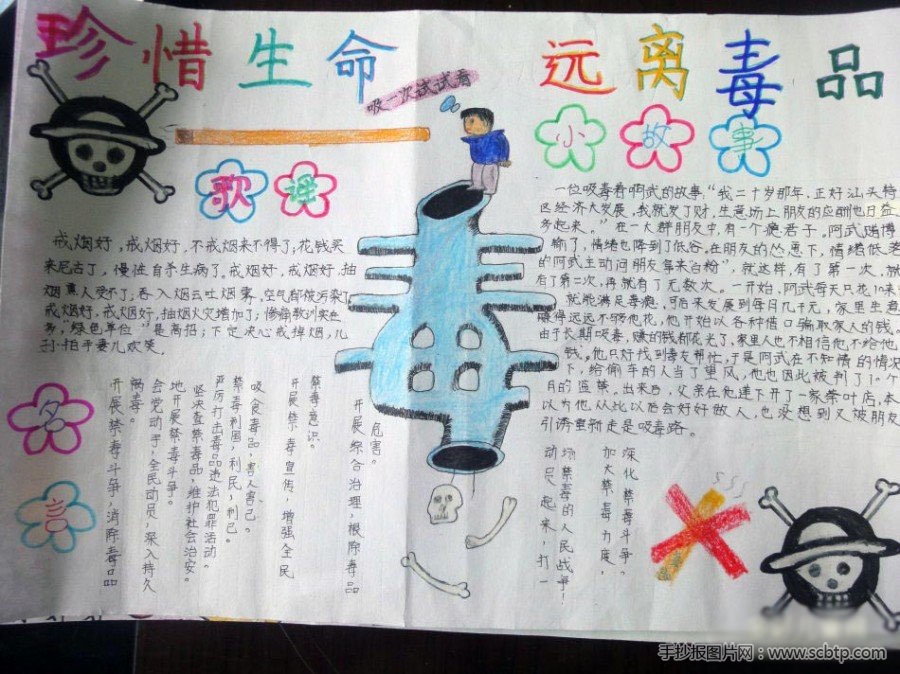 珍惜生命 远离毒品
吸一次试试看
歌谣
戒烟好,戒烟好,不戒烟来不得了,花钱买
来尼古丁,慢性自杀生病了。戒烟好,戒烟好,抽
烟熏人受不了,吞入烟云吐烟雾,空气都被污染了
戒烟好,戒烟好,抽烟火灾增加了;
务,“绿色单位”是高招;下定决心戒掉烟,儿
孙拍手妻儿欢笑。
小故事
一位吸毒者阿武的故事:“我二十岁那年,正好汕头特
区经济大发展,我就发了财,生意场上朋友的应酬也日益
多起来。”在一大群朋友中,有个瘾君子。阿武赌博
输了,情绪也降到了低谷。在朋友的怂恿下,情绪低落
的阿武主动问朋友每来“白粉”,就这样,有了第一次,就
有了第二次,再就有了无数次。一开始,阿武每天只花10来
就能满足毒瘾,可后来发展到每月几千元,家里生意
赚得远远不够他花,他开始以各种借口骗取家人的钱。
由于长期吸毒,赚的钱都花光了,家里人也不相信他不给他
钱。他只好找到毒友帮忙,于是阿武在不知情的情况
下,给偷车的人当了望风,他也因此被判了1个
月的监禁。出来后,父亲在他连下开了一家茶叶店,本
以为他从此以后会好好做人,也没想到又被朋友
引诱重新走是吸毒路。
名言
开展禁毒斗争,消除毒品
祸害。
全党动手,全民动员,深入持久
地开展禁毒斗争。
坚决查禁毒品,维护社会治安。
严厉打击毒品违法犯罪活动。
禁毒利国,利民,利己。
吸食毒品,害人害己。
开展禁毒宣传,增强全民
禁毒意识。
开展综合治理,根除毒品
危害。
动员起来,打一
场禁毒的人民战争!
加大禁毒力度,
深化禁毒斗争。
手抄报图片网:www.scbtp.com